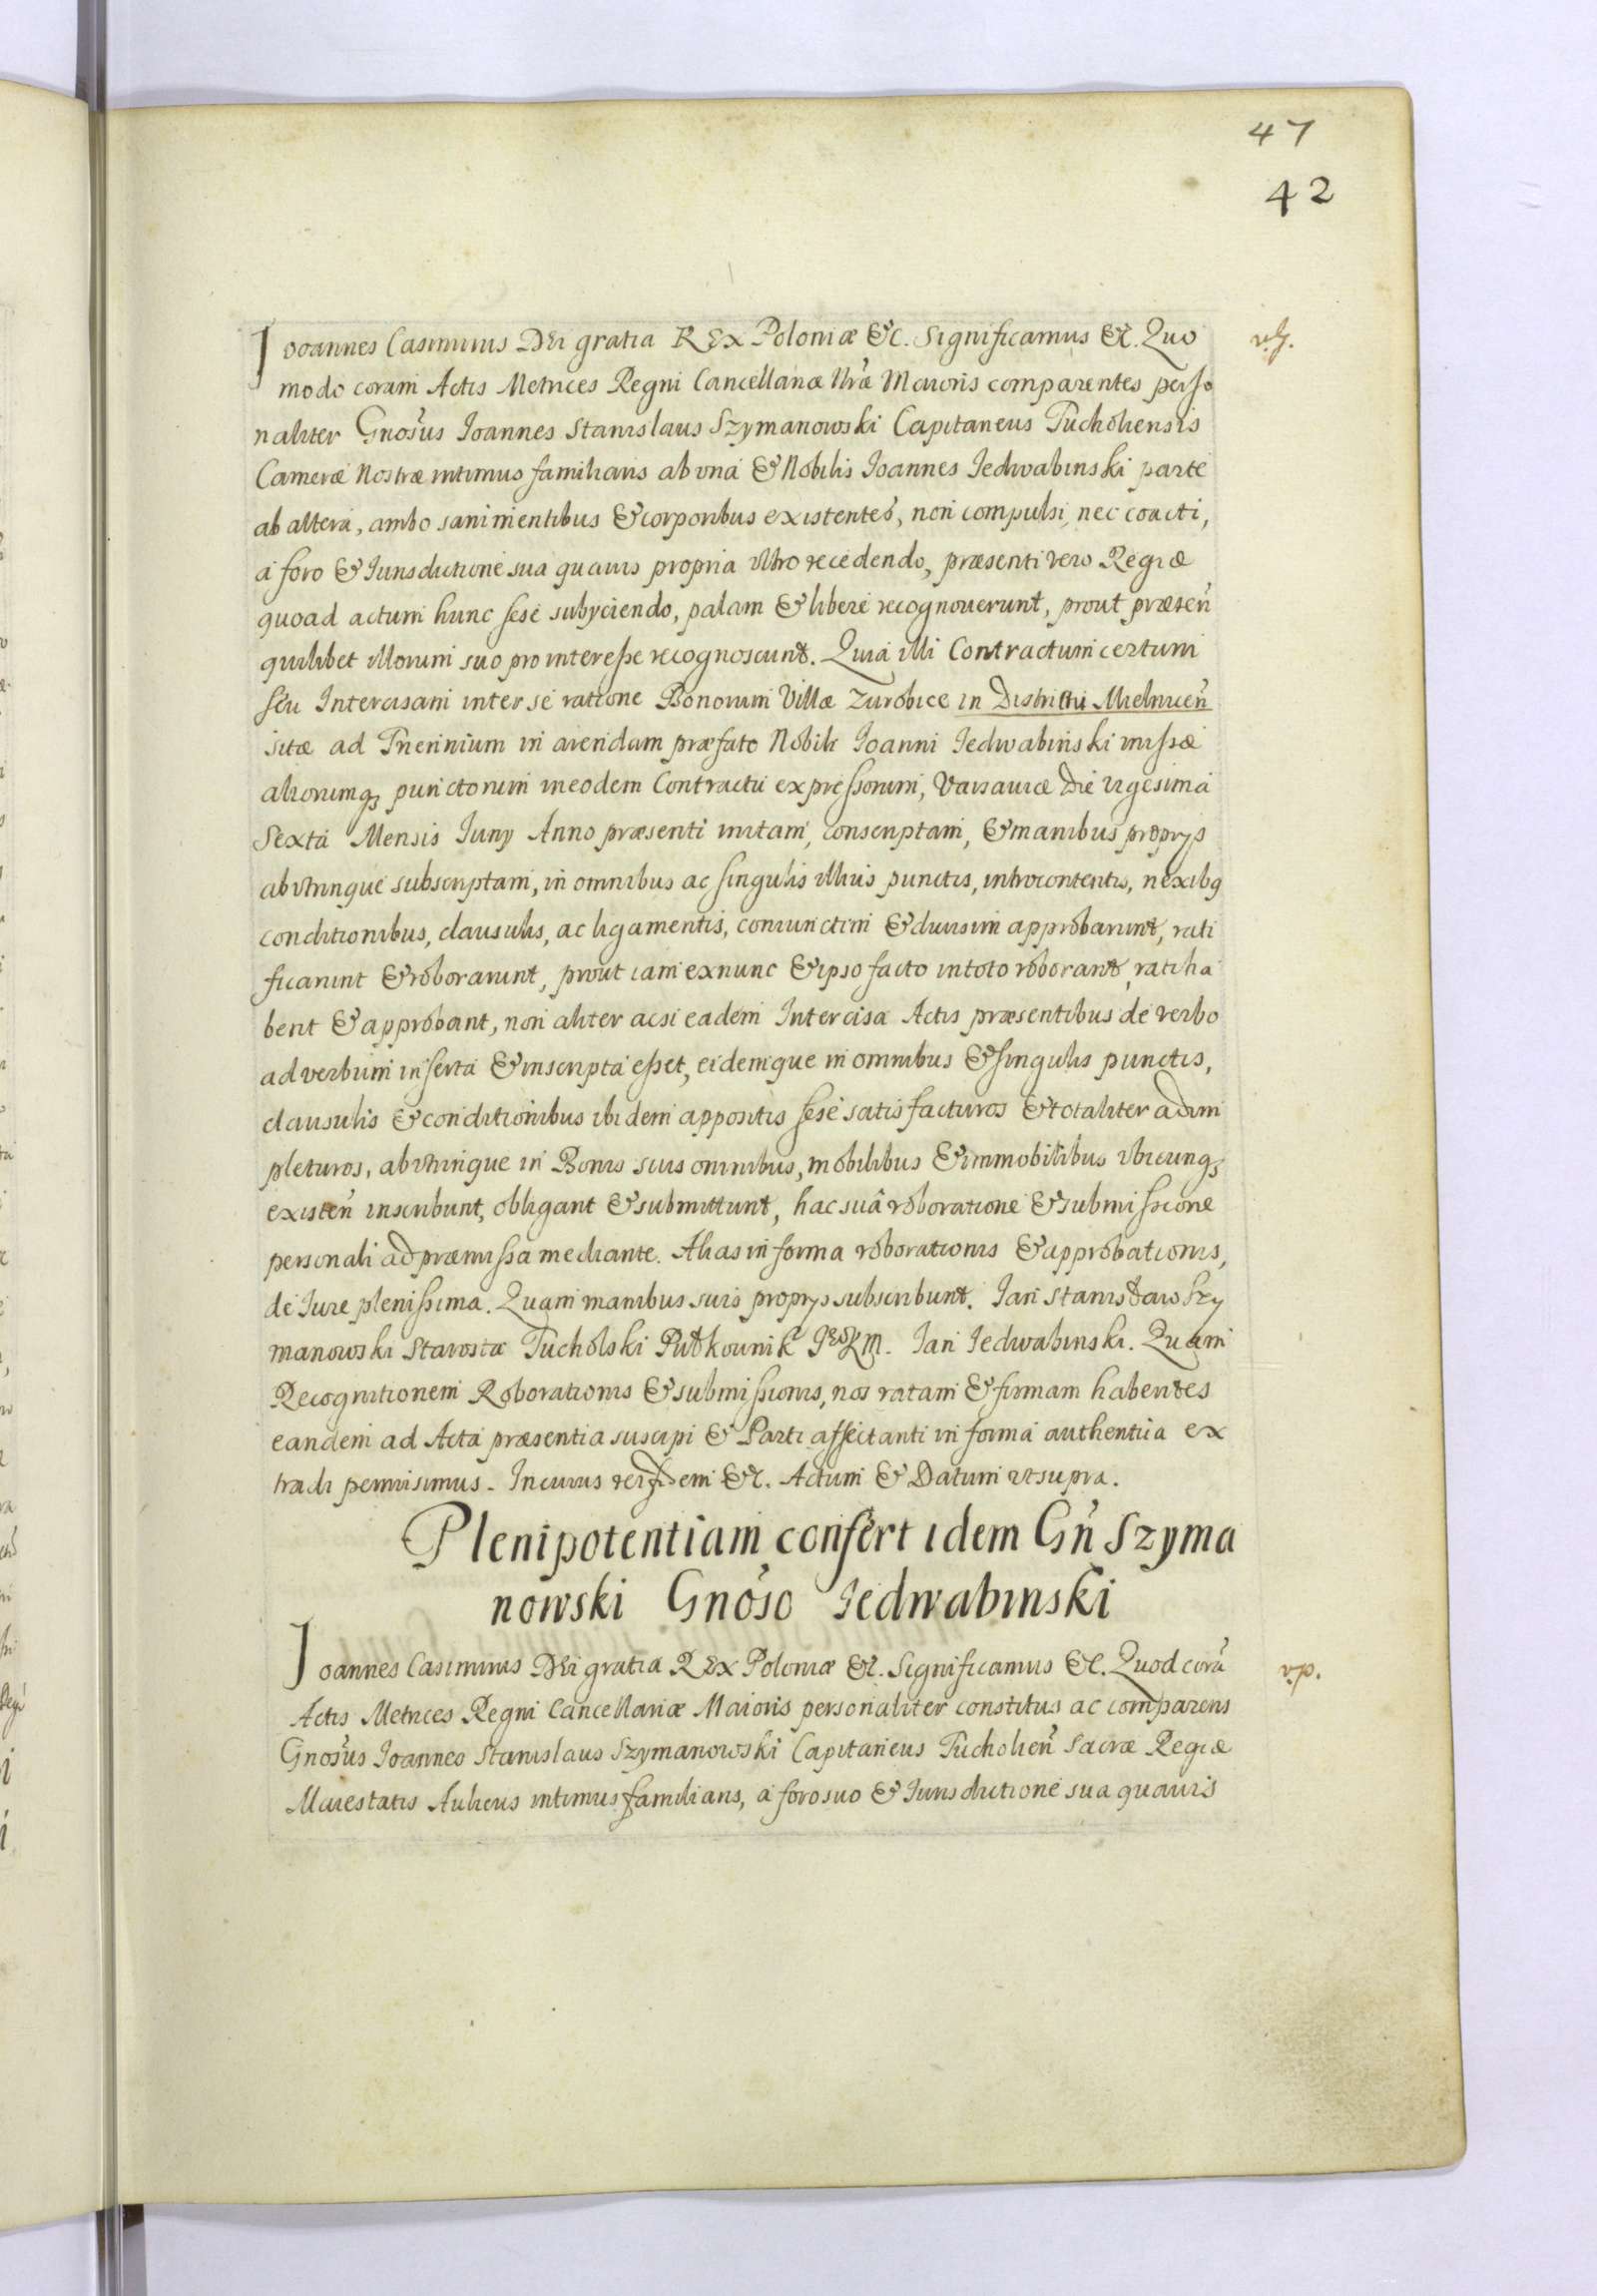 47
42
Joannes Casimirus DEi gratia REx Poloniæ &c. Significamus &c. Quo
modo coram Actis Metrices Regni Cancellariæ Nr̃æ Maioris comparentes perso
naliter Gnosus Joannes Stanislaus Szymanowski Capitaneus Tucholiensis
Cameræ Nostræ intimus familiaris ab vna & Nobilis Joannes Jedwabinski parte
ab altera, ambo sani mentibus & corporibus existentes, non compulsi nec coacti,
a foro & Iurisdictione sua quauis propria vltro recedendo, præsenti vero Regiæ
quoad actum hunc sese subyciendo, palam & libere recognouerunt, prout præsen
quilibet illorum suo pro interesse recognoscunt. Quia illi Contractum certum
seu Intercisam inter se ratione Bonorum Villæ Zurobice in Districtu Mielnicen
sitæ ad Triennium in arendam præfato Nobili Joanni Jedwabinski missæ
aliorumq; punctorum in eodem Contractu expressorum, Varsauiæ Die vigesima
Sexta Mensis Juny Anno præsenti initam, conscriptam, & manibus proprys
ab vtrinque subscriptam, in omnibus ac singulis illius punctis, introcontentis, nexibq
conditionibus, clausulis, ac ligamentis, coniunctim & diuisim approbarunt, rati
ficarunt & roborarunt, prout iam ex nunc & ipso facto in toto roborant, rati ha
bent & approbant, non aliter ac si eadem Intercisa Actis præsentibus de verbo
ad verbum inserta & inscripta esset, eidemque in omnibus & singulis punctis,
clausulis & conditionibus ibidem appositis sese satisfacturos & totaliter adim
pleturos, ab vtrinque in Bonis suis omnibus, mobilibus & immobilibus vbicunq;
existen inscribunt, obligant & submittunt, hac suâ roboratione & submissione
personali ad præmissa mediante. Alias in forma roborationis & approbationis,
de Iure plenissima. Quam manibus suis proprys subscribunt. Jan Stanisław Szy
manowski Starosta Tucholski Pułkownik JKM. Jan Jedwabinski. Quam
Recognitionem Roborationis & submissionis, nos ratam & firmam habentes
eandem ad Acta præsentia suscipi & Parti affectanti in forma authentica ex
tradi permisimus. In cuius rei fidem &c. Actum & Datum vt supra.
Plenipotentiam confert idem Gn Szyma
nowski Gnoso Jedwabinski
Joannes Casimirus DEi gratia REx Poloniæ &c. Significamus &c. Quod corã
Actis Metrices Regni Cancellariæ Maioris personaliter constitus ac comparens
Gnosus Joannes Stanislaus Szymanowski Capitaneus Tucholien Sacræ Regiæ
Maiestatis Aulicus intimus familiaris, a foro suo & Iurisdictione sua quauis
v.p.